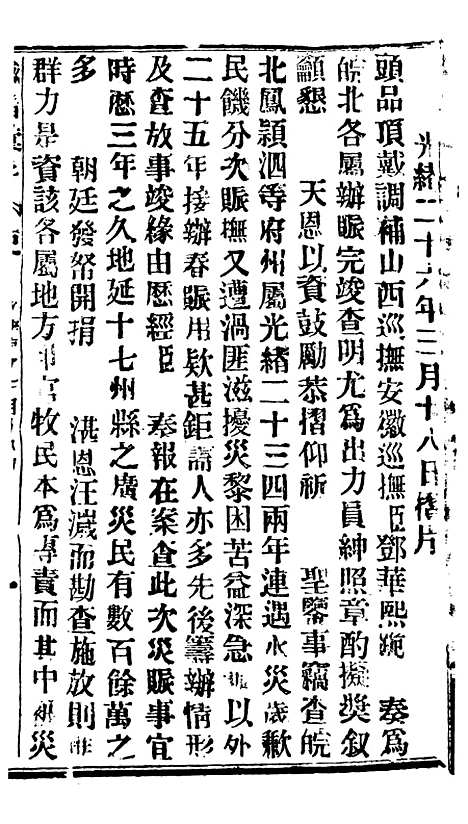 光緒二十六年三月十八日摺片
頭品頂戴調補山西巡撫安徽巡撫臣鄧華熙跪 奏爲
皖北各屬辦賑完竣查明尤爲出力員紳照章酌擬獎叙
籲懇 天恩以資鼓勵恭摺仰祈 聖鑒事竊查皖
北鳳潁泗等府州屬光緒二十三四兩年連遇水災歲歉
民饑分次賑撫又遭渦匪滋擾災黎困苦益深急 以外
二十五年接辦春賑用欵甚鉅 人亦多先後籌辦情形
及查放事竣緣由歷經臣 奏報在案查此次災賑事宜
時歷三年之久地延十七州縣之廣災民有數百餘萬之
多 朝廷發帑開捐 湛恩汪濊而勘查施放則
群力是資該各屬地方 官牧民本爲專責而其中 災